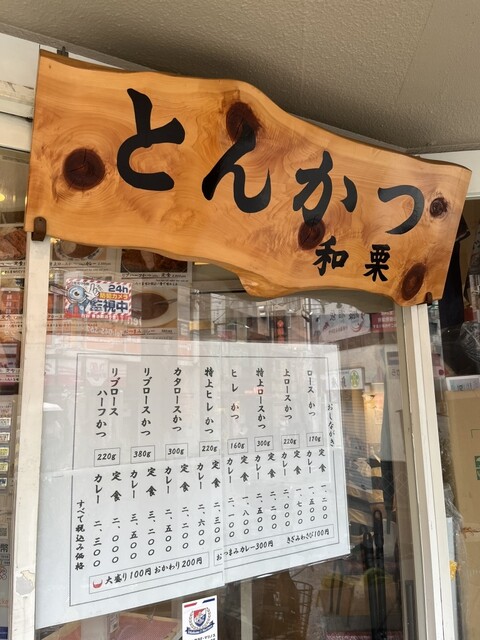 とんかつ
和栗
24h
防犯カメラ
監視中
おしながき
ロースかつ 170g 定食 一、二〇〇
カレー 一、五〇〇
上ロースかつ 220g 定食 一、七〇〇
カレー 二、〇〇〇
特上ロースかつ 300g 定食 二、二〇〇
カレー 二、五〇〇
ヒレかつ 160g 定食 一、八〇〇
カレー 二、一〇〇
特上ヒレかつ 220g 定食 二、三〇〇
カレー 二、六〇〇
カタロースかつ 300g 定食 二、二〇〇
カレー 二、五〇〇
リブロースかつ 380g 定食 三、二〇〇
カレー 三、五〇〇
リブロース
ハーフかつ 220g 定食 二、〇〇〇
カレー 二、三〇〇
すべて税込み価格
大盛り100円 おかわり200円
おつまみカレー300円
きざみわさび100円